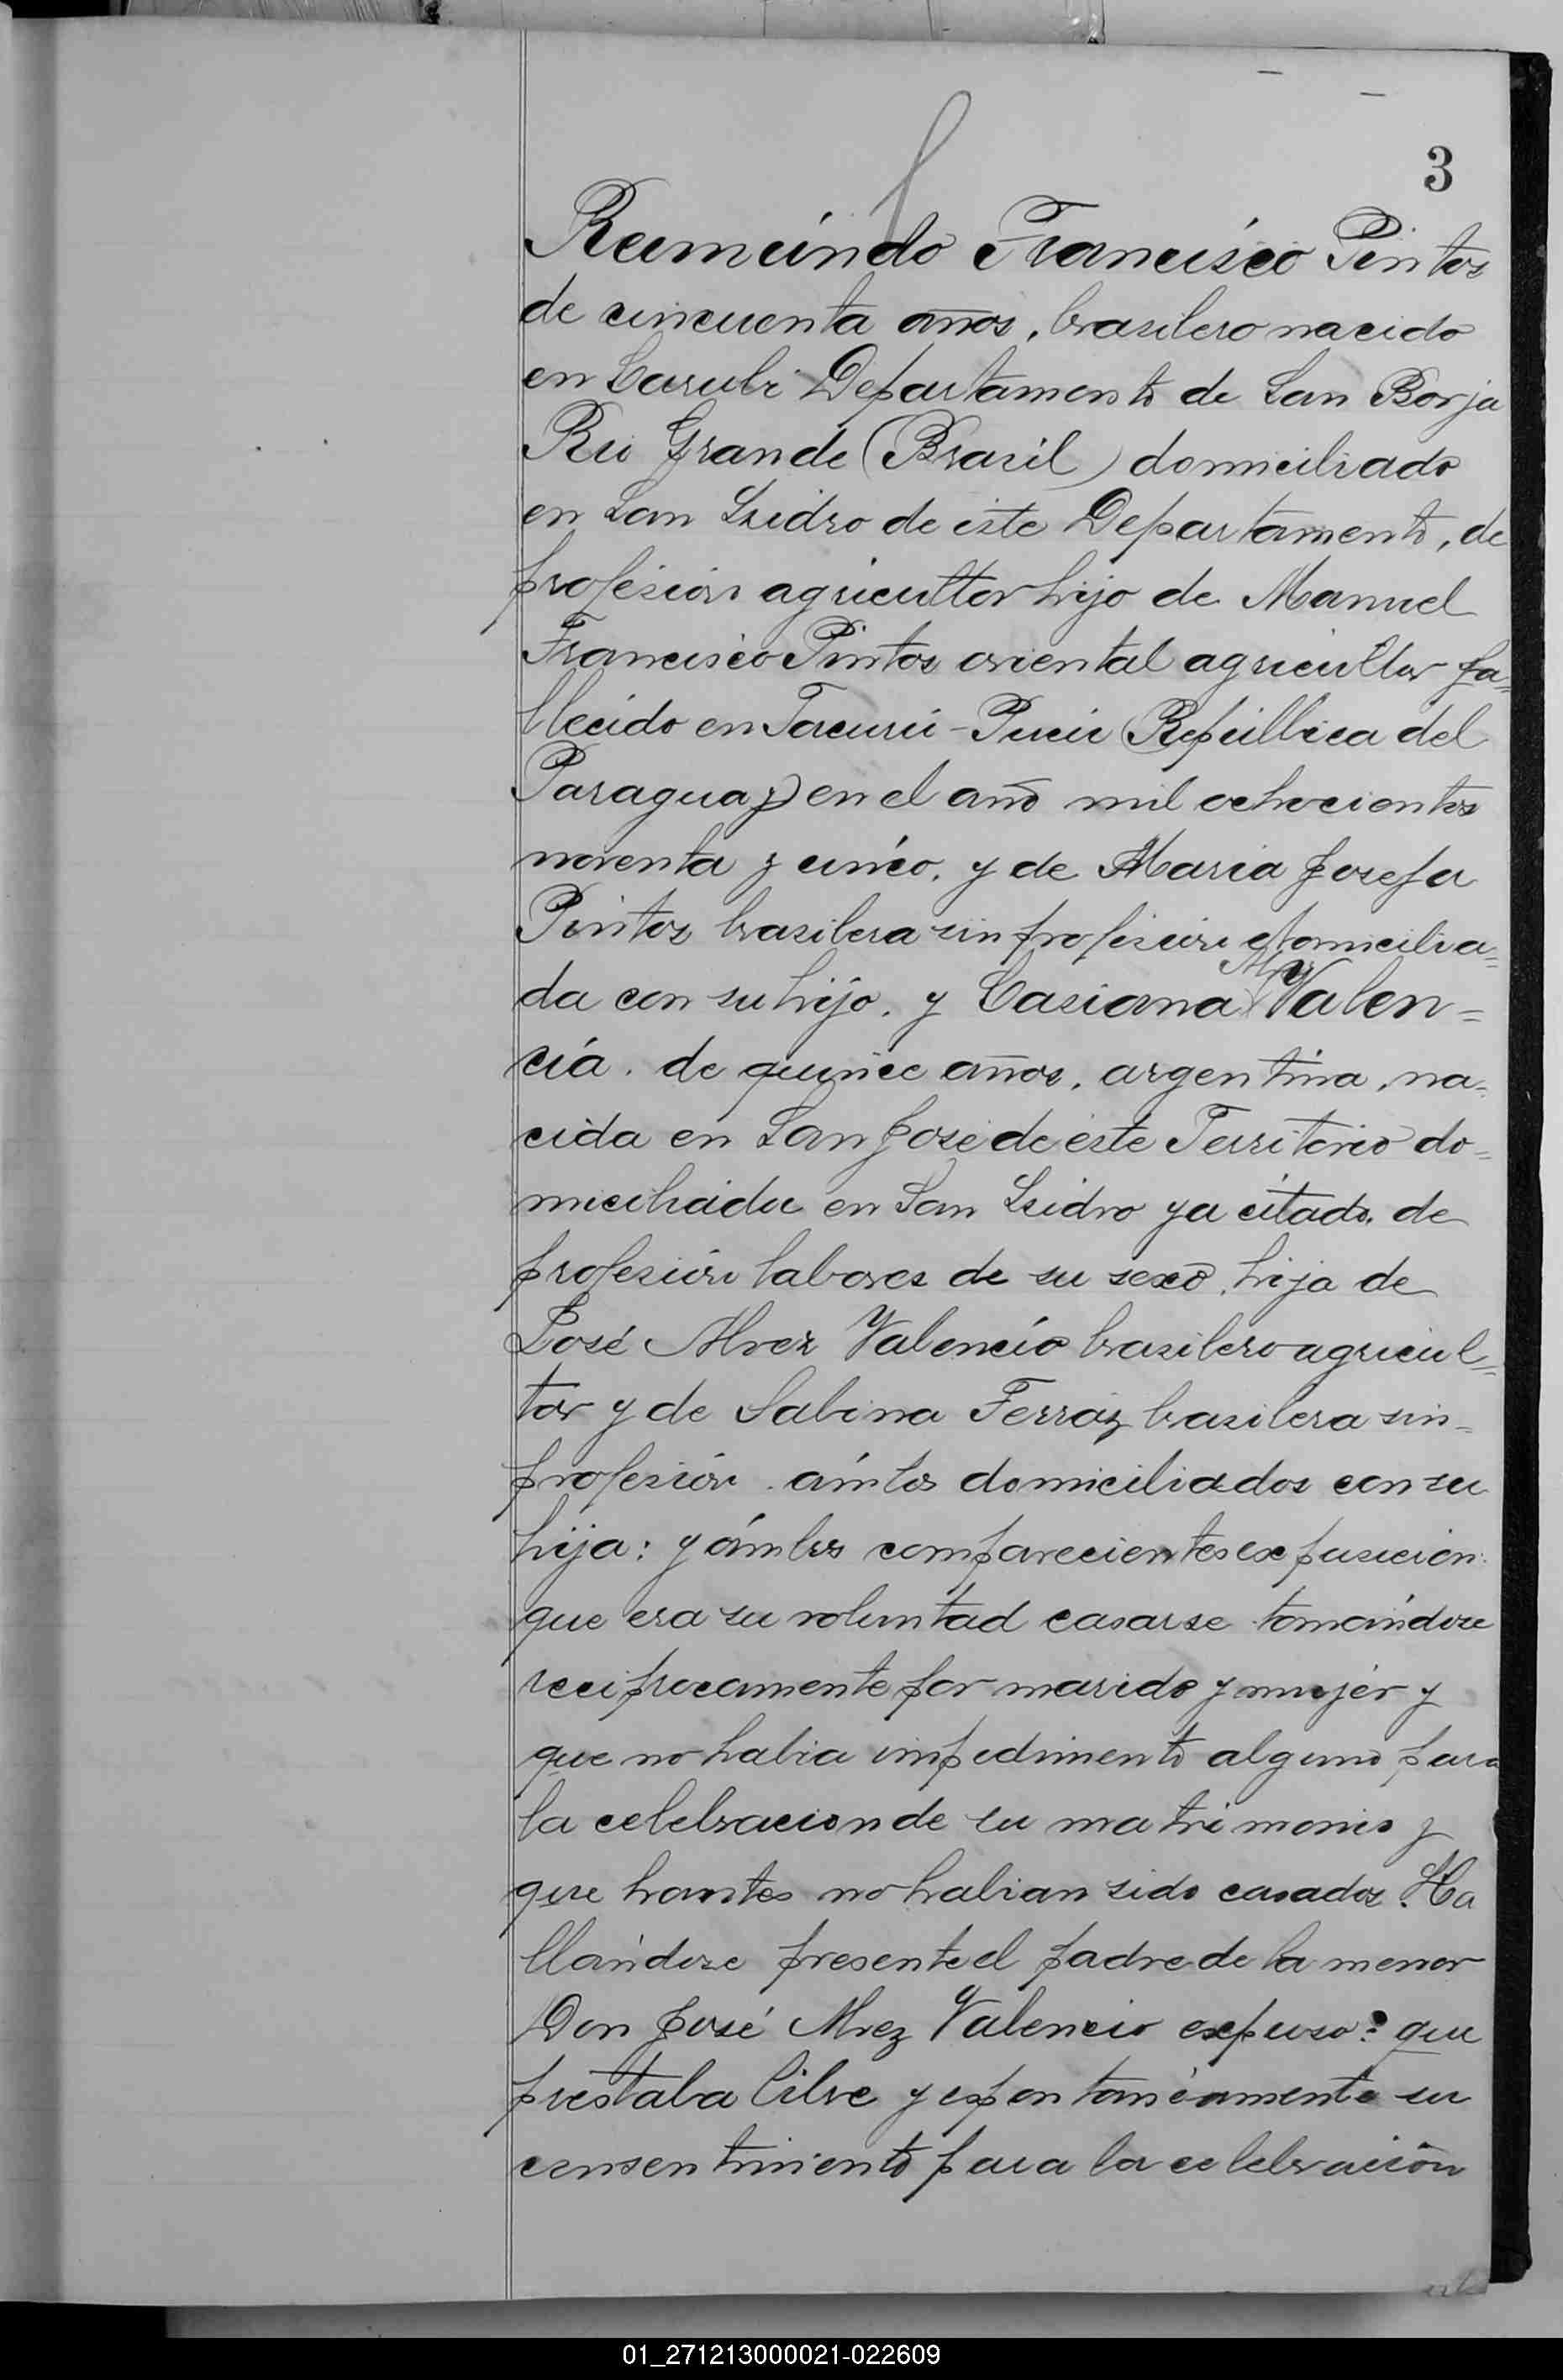 3
Reumúndo Francisco Pintos
de cincuenta años, brasilero nacido
en Carubi Departamento de San Borja
Rio Grande (Brasil) domiciliado
en San Isidro de este Departamento, de
profesión agricultor hijo de Manuel
Francisco Pintos oriental agricultor fa=
llecido en Tacurú-Pucú (República del
Paraguay) en el año mil ochocientos
noventa y cinco, y de Maria Josefa
Pintos brasilera sin profesión domicilia=
da con su hijo. y Casiana Valen=
cia. de quince años, argentina, na=
cida en San José de este Territorio do=
miciliada en San Isidro ya citado, de
profesión labores de su sexo, hija de
José Alvez Valencio brasilero agricul=
tor y de Sabina Ferraz brasilera sin=
profesión. ámbos domiciliados con su
hija: y ámbos comparecientes expusieron:
que era su voluntad casarse tomándose
reciprocamente por marido y mujer y
que no habia impedimento alguno para
la celebracion de su matrimonio y
que hantes no habian sido casados. Ha
llándose presente el padre de la menor
Don José Alvez Valencio expuso: que
prestaba libre y espontanéamente su
consentimiento para la celebración
01_271213000021-022609